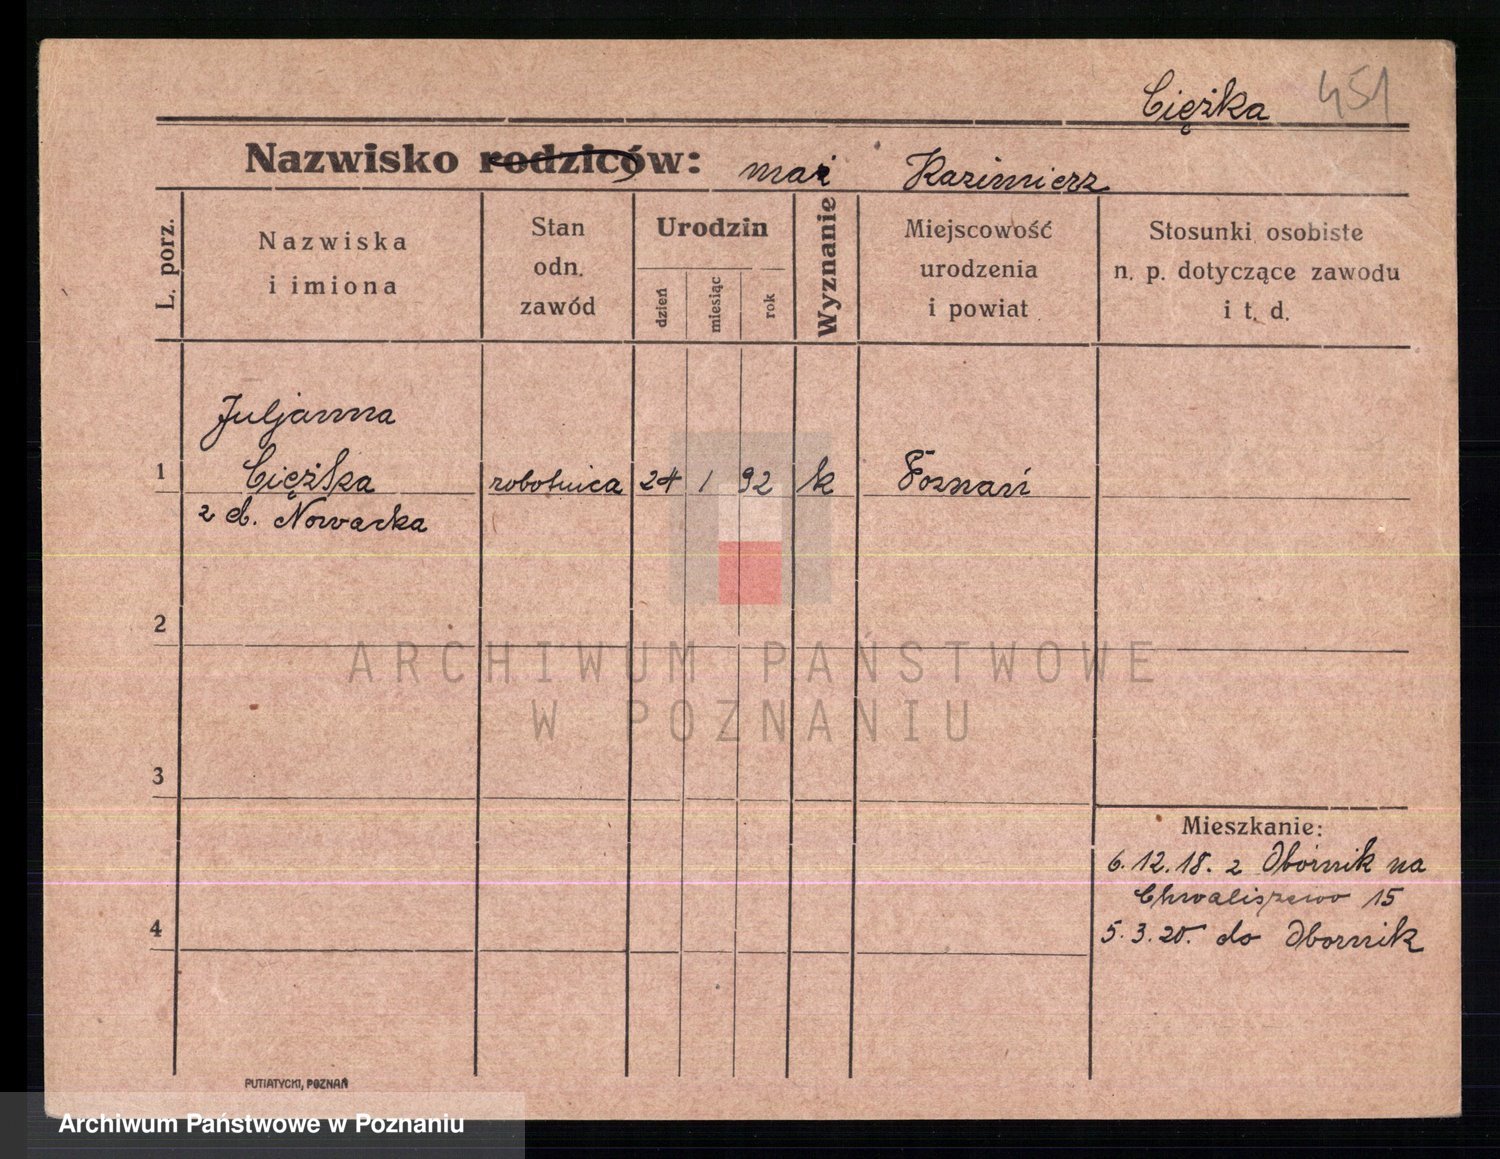 Ciężka 451
Nazwisko rodziców: mąż Kazimierz
L. porz.
Nazwiska
i imiona
Stan
odn.
zawód
Urodzin
dzień
miesiąc
rok
Wyznanie
Miejscowość
urodzenia
i powiat
Stosunki osobiste
n. p. dotyczące zawodu
i t. d.
Juljanna
1 Ciężka robotnica 24 1 92 k Poznań
z d. Nowacka
2
ARCHIWUM PAŃSTWOWE
W POZNANIU
3
Mieszkanie:
6.12.18. z Obornik na
Chwaliszewo 15
4 5.3.20. do Obornik
PUTIATYCKI, POZNAŃ
Archiwum Państwowe w Poznaniu